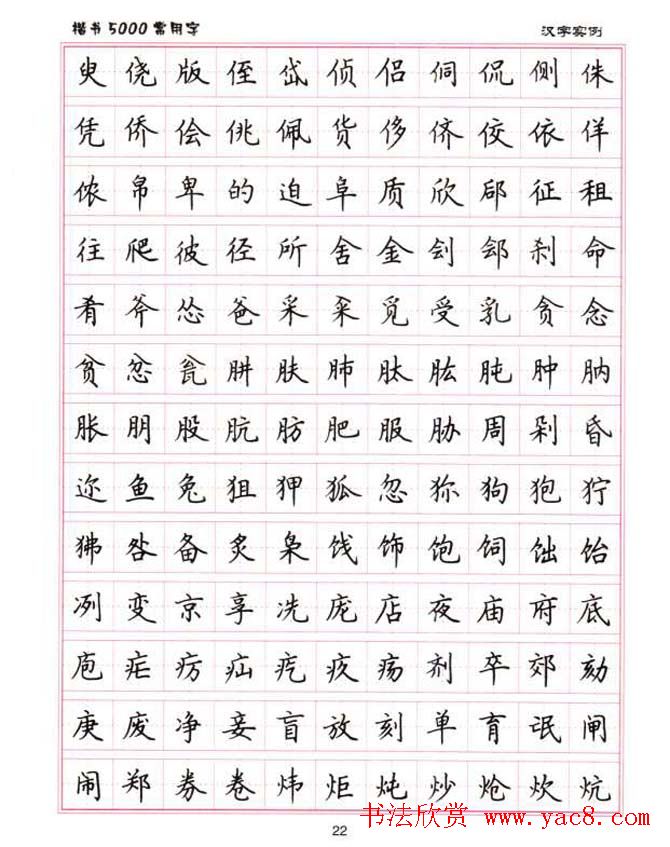 楷书5000常用字 汉字实例
臾 侥 版 侄 岱 侦 侣 侗 侃 侧 侏
凭 侨 侩 佻 佩 货 侈 侪 佼 依 佯
侬 帛 卑 的 迫 阜 质 欣 郈 征 徂
往 爬 彼 径 所 舍 金 刽 郐 刹 命
肴 斧 怂 爸 采 籴 觅 受 乳 贪 念
贫 忿 瓮 肼 肤 肺 肽 肱 肫 肿 肭
胀 朋 股 肮 肪 肥 服 胁 周 剁 昏
迩 鱼 兔 狙 狎 狐 忽 狝 狗 狍 狞
狒 咎 备 炙 枭 饯 饰 饱 饲 饳 饴
冽 变 京 享 冼 庞 店 夜 庙 府 底
庖 疟 疠 疝 疙 疚 疡 剂 卒 郊 劾
庚 废 净 妾 盲 放 刻 单 育 氓 闸
闹 郑 券 卷 炜 炬 炖 炒 炝 炊 炕
22
书法欣赏 www.yac8.com